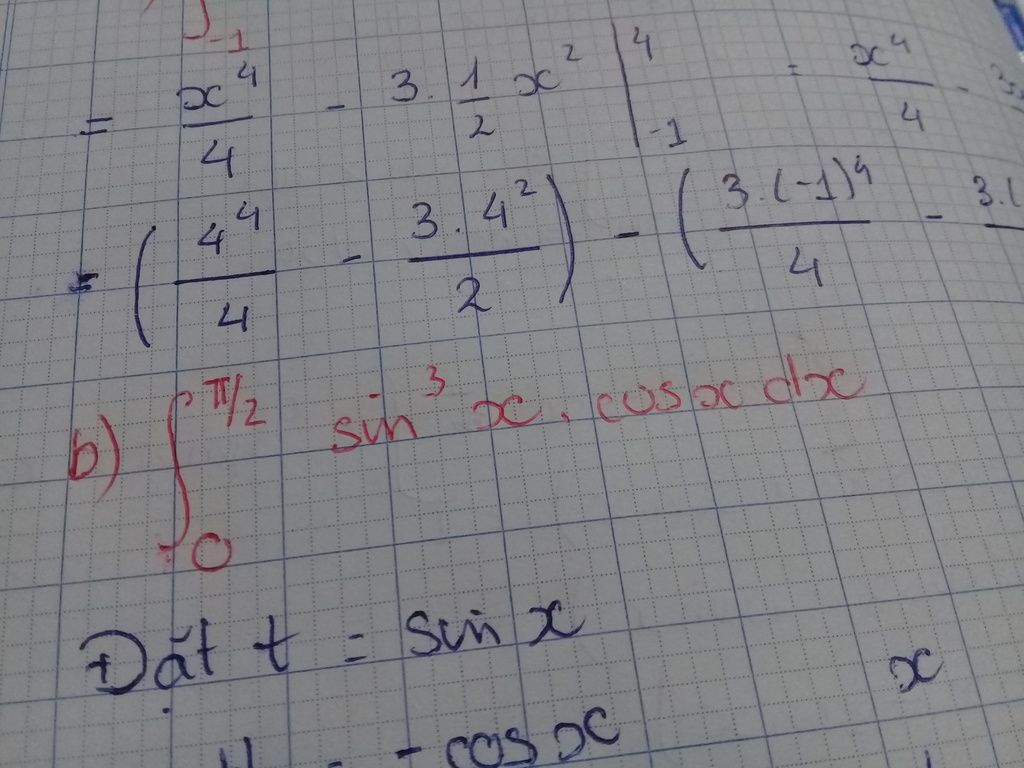 -1
= x⁴/4 - 3. 1/2 x² |⁴₋₁ = x⁴/4 -
= (4⁴/4 - 3.4²/2) - (3.(-1)⁴/4 - 3.(
b) ∫₀^π/2 sin³ x. cosx dx
Đặt t = sin x
x
- cosx